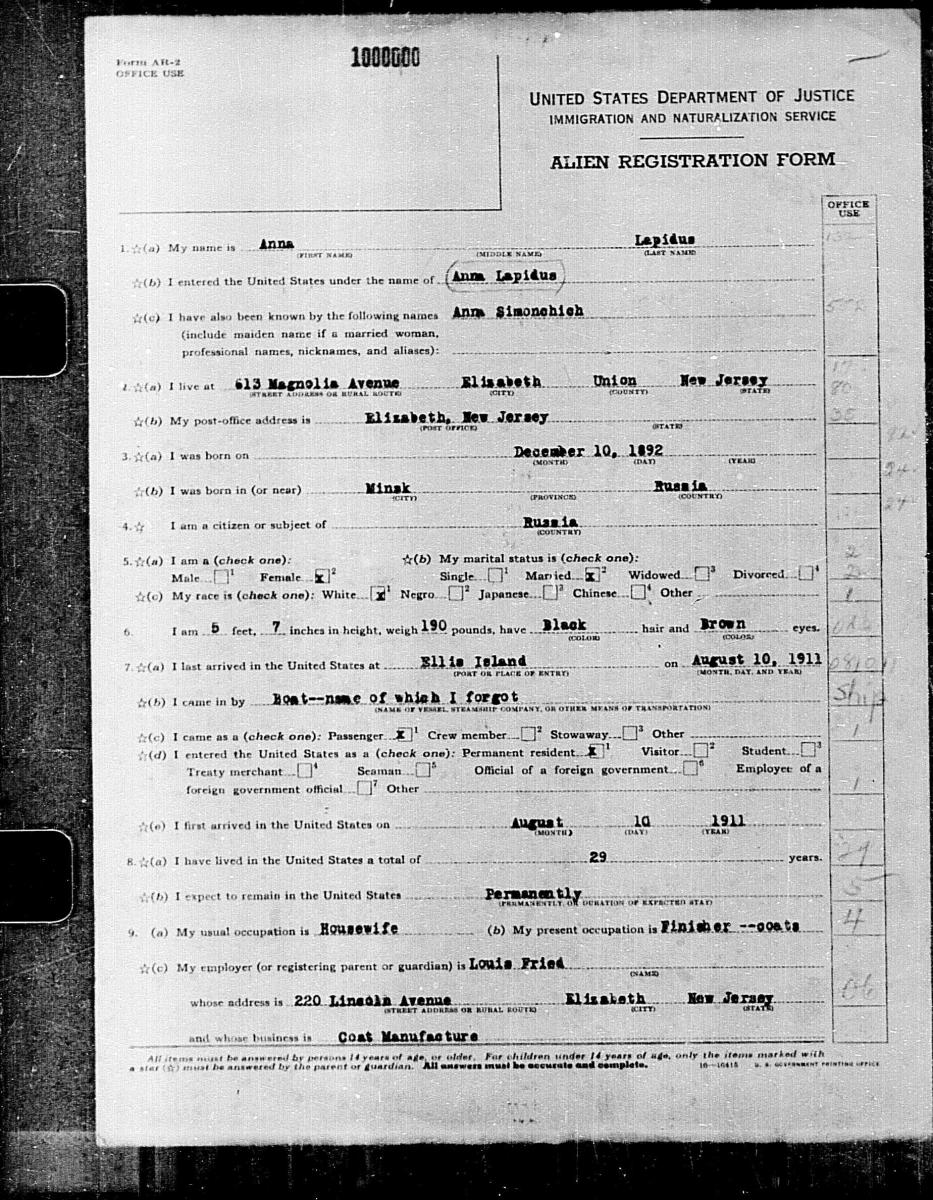 Form AR-2
OFFICE USE
1000000
UNITED STATES DEPARTMENT OF JUSTICE
IMMIGRATION AND NATURALIZATION SERVICE
ALIEN REGISTRATION FORM
OFFICE USE
1. ☆(a) My name is Anna Lapidus
(FIRST NAME) (MIDDLE NAME) (LAST NAME)
☆(b) I entered the United States under the name of Anna Lapidus
☆(c) I have also been known by the following names Anna Simonchich
(include maiden name if a married woman,
professional names, nicknames, and aliases):
2. ☆(a) I live at 613 Magnolia Avenue Elizabeth Union New Jersey
(STREET ADDRESS OR RURAL ROUTE) (CITY) (COUNTY) (STATE)
80
☆(b) My post-office address is Elizabeth, New Jersey 35
(POST OFFICE) (STATE)
3. ☆(a) I was born on December 10, 1892
(MONTH) (DAY) (YEAR)
24
☆(b) I was born in (or near) Minsk Russia
(CITY) (PROVINCE) (COUNTRY)
27
4. ☆ I am a citizen or subject of Russia
(COUNTRY)
5. ☆(a) I am a (check one): ☆(b) My marital status is (check one): 2
Male 1 Female x 2 Single 1 Married x 2 Widowed 3 Divorced 4 2
☆(c) My race is (check one): White x 1 Negro 2 Japanese 3 Chinese 4 Other 1
6. I am 5 feet, 7 inches in height, weigh 190 pounds, have Black hair and Brown eyes.
(COLOR) (COLOR)
7. ☆(a) I last arrived in the United States at Ellis Island on August 10, 1911 081011
(PORT OR PLACE OF ENTRY) (MONTH, DAY, AND YEAR)
☆(b) I came in by Boat--name of which I forgot Ship
(NAME OF VESSEL, STEAMSHIP COMPANY, OR OTHER MEANS OF TRANSPORTATION)
☆(c) I came as a (check one): Passenger x 1 Crew member 2 Stowaway 3 Other 1
☆(d) I entered the United States as a (check one): Permanent resident x 1 Visitor 2 Student 3
Treaty merchant 4 Seaman 5 Official of a foreign government 6 Employee of a
foreign government official 7 Other 1
☆(e) I first arrived in the United States on August 10 1911
(MONTH) (DAY) (YEAR)
8. ☆(a) I have lived in the United States a total of 29 years. 29
☆(b) I expect to remain in the United States Permanently 5
(PERMANENTLY, OR DURATION OF EXPECTED STAY)
9. (a) My usual occupation is Housewife (b) My present occupation is Finisher --coats 4
☆(c) My employer (or registering parent or guardian) is Louis Fried
(NAME)
whose address is 220 Lincoln Avenue Elizabeth New Jersey
(STREET ADDRESS OR RURAL ROUTE) (CITY) (STATE)
and whose business is Coat Manufacture
All items must be answered by persons 14 years of age, or older. For children under 14 years of age, only the items marked with
a star (☆) must be answered by the parent or guardian. All answers must be accurate and complete. 16—16415 U. S. GOVERNMENT PRINTING OFFICE